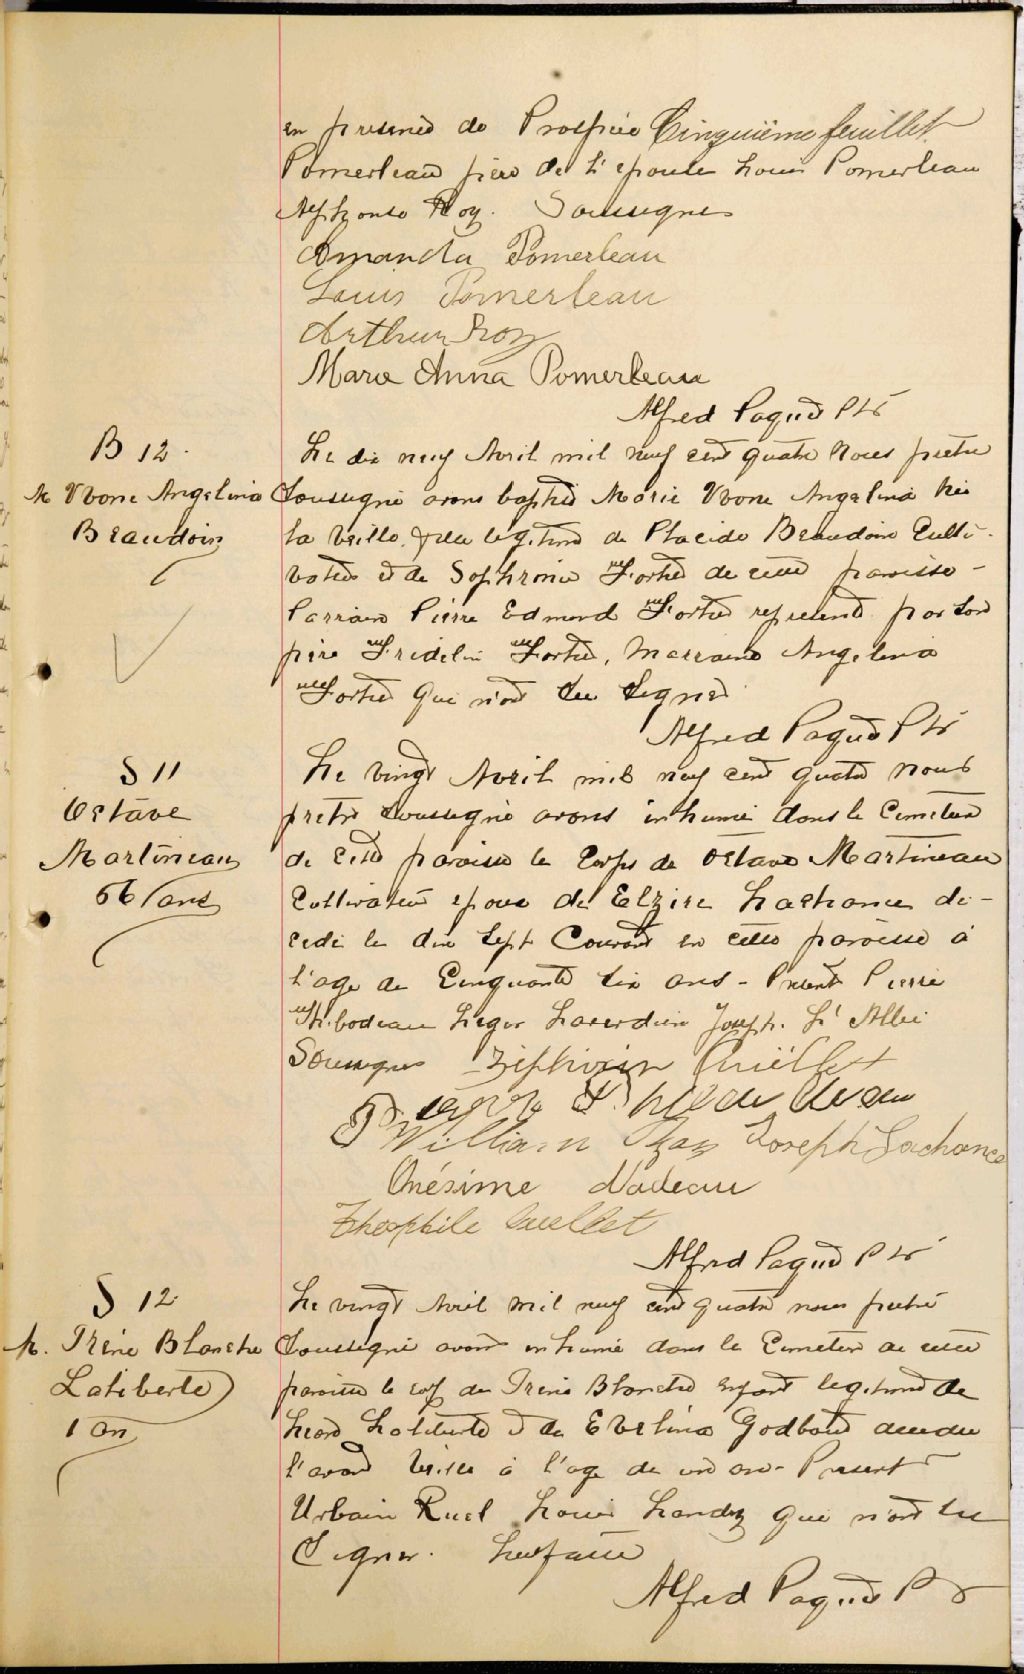 en presence de Prosper Cinquième feuillet
Pomerleau père de l'epouse Louis Pomerleau
Alphonse Roy. Soussignes
Amanda Pomerleau
Louis Pomerleau
Arthur Roy
Marie Anna Pomerleau
Alfred Paquet Ptr
B 12.
M Yvone Angelina
Beaudoin
Le dix neuf Avril mil neuf cent quatre Nous pretre
Soussigné avons baptisé Marie Yvone Angelina née
la veille, fille legitime de Placide Beaudoin Culti-
vateur et de Sophronie Fortier de cette paroisse -
Parrain Pierre Edmond Fortier represente par son
père Fridelin Fortier, Marraine Angelina
Fortier Qui n'ont su signer
Alfred Paquet Ptr
S 11
Octave
Martineau
56 ans
Le vingt Avril mil neuf cent quatre nous
pretre soussigné avons inhumé dans le Cimetiere
de cette paroisse le Corps de Octave Martineau
Cultivateur epoux de Elzire Lachance dé-
cedé le dix sept Courant en cette paroisse à
l'age de Cinquante six ans - Present Pierre
Thibodeau Joseph
Soussignes Zephirin Ouellet
Pierre Thibodeau
William Roy Joseph Lachance
Onésime Nadeau
Theophile Ouellet
Alfred Paquet Ptr
S 12
M. Irène Blanche
Laliberte
1 an
Le vingt Avril mil neuf cent quatre nous pretre
Soussigné avons inhumé dans le Cimetiere de cette
paroisse le corps de Irène Blanche enfant legitime de
Léon Laliberte et de Evelina Godbout decedee
l'avant veille à l'age de un an - Present
Urbain Ruel Louis Landry Qui n'ont su
Signer. Lecture faite
Alfred Paquet Ptr